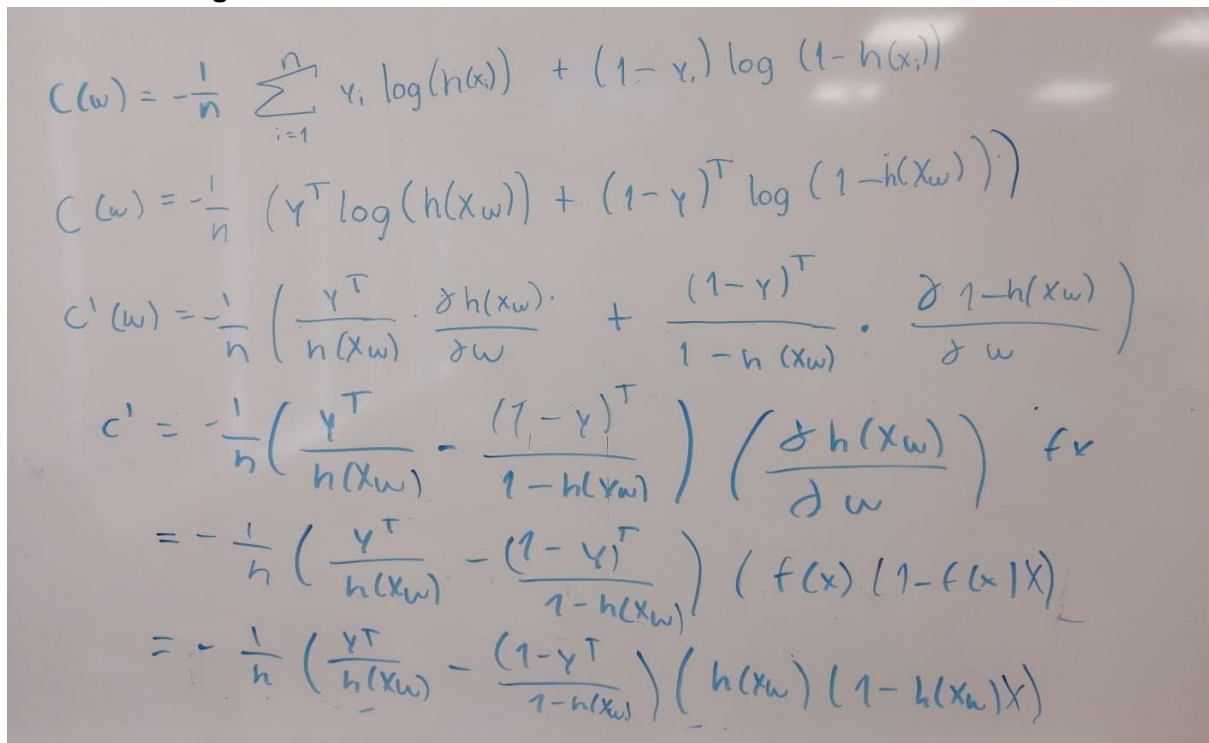 C(w) = -1/n Σ_{i=1}^{n} y_i log(h(x_i)) + (1-y_i) log (1-h(x_i))
C(w) = -1/n (y^T log(h(Xw)) + (1-y)^T log (1-h(Xw)))
C'(w) = -1/n ( y^T / h(Xw) · ∂h(Xw) / ∂w + (1-y)^T / 1-h(Xw) · ∂ 1-h(Xw) / ∂w )
C' = -1/n ( y^T / h(Xw) - (1-y)^T / 1-h(Xw) ) ( ∂h(Xw) / ∂w ) fx
= -1/n ( y^T / h(Xw) - (1-y)^T / 1-h(Xw) ) ( f(x) (1-f(x)X)
= -1/n ( y^T / h(Xw) - (1-y^T / 1-h(Xw) ) ( h(Xw) (1-h(Xw)X)